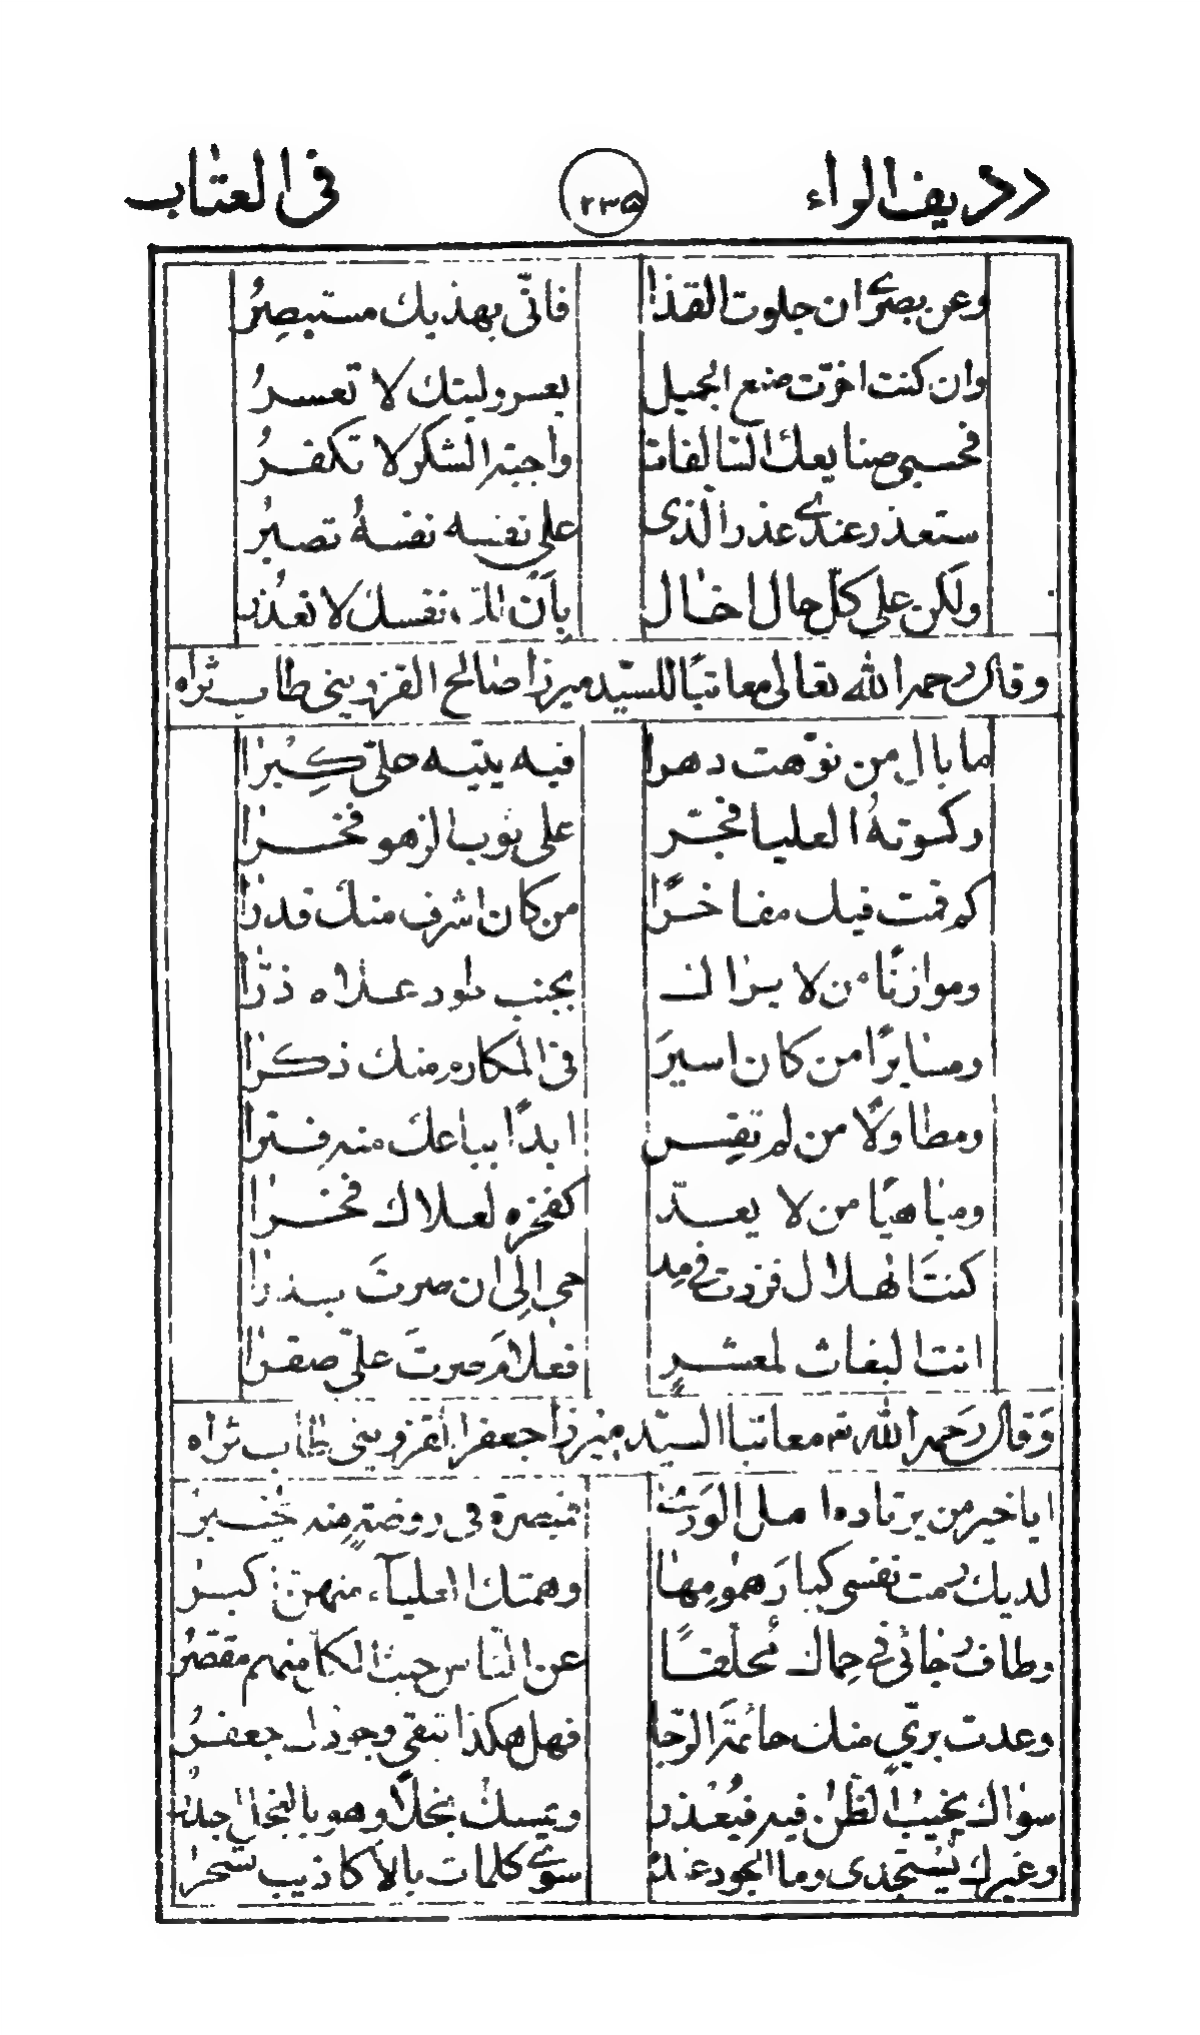 رديف الراء ٢٣٥ فى العتاب
وعن بصرى ان جلوت القذا فانّى بهذيك مستبصرُ
وان كنت اخرّت صنع الجميل بعسر وليتك لا تعسرُ
فحسبى صنايعك السالفات واجبة الشكر لا تكفرُ
ستعذر عندى عذر الذى على نفسه نفسهُ تصبرُ
ولكن على كلّ حال اخال بأنّ نفسك لا تعذر
وقال رحمه الله تعالى معاتبًا للسيّد ميرزا صالح القزوينى طاب ثراه
ما بال من نوّهت دهرا فيه يتيه علىّ كِبرا
وكسوتهُ العليا فجرّ على ثوب الزهو فخرا
كم قمت فيك مفاخرًا من كان اشرف منك قدرا
وموازنًا من لا يزال بجنب طود علاه ذرّا
ومسايرًا من كان اسيرَ فى المكارم منك ذكرا
ومطاولًا من لم تقِس ابدًا بباعك منه فترا
ومباهيًا من لا يعدّ كفخره لعلاك فخرا
كنتَ الهلال فزدت فى مد حى الى ان صرتَ بدرا
انت البغاث لمعشرٍ فعلامَ صرتَ علىّ صقرا
وَقال رَحمه الله معاتبا السيّد ميرزا جعفر القزوينى طاب ثراه
ايا خير من يرتاده امل الورى فيبصره فى روضة منه يخبرُ
لديك رمت نفسى كبار همومها وهمتك العلياء منهنّ اكبر
وطاف رجائى فى حماك محلّقًا عن النّاس حيث الكلّ منهم مقصّرُ
وعدت بريّى منك حائمة الرّجا فهل هكذا تبقى وجودك جعفرُ
سواك يخيب الظنّ فيه فيُعذر ويمسك بخلًا وهو بالبخل اجدر
وغيرك يُستجدى وما الجود عنده سوى كلمات بالأكاذيب تسحر